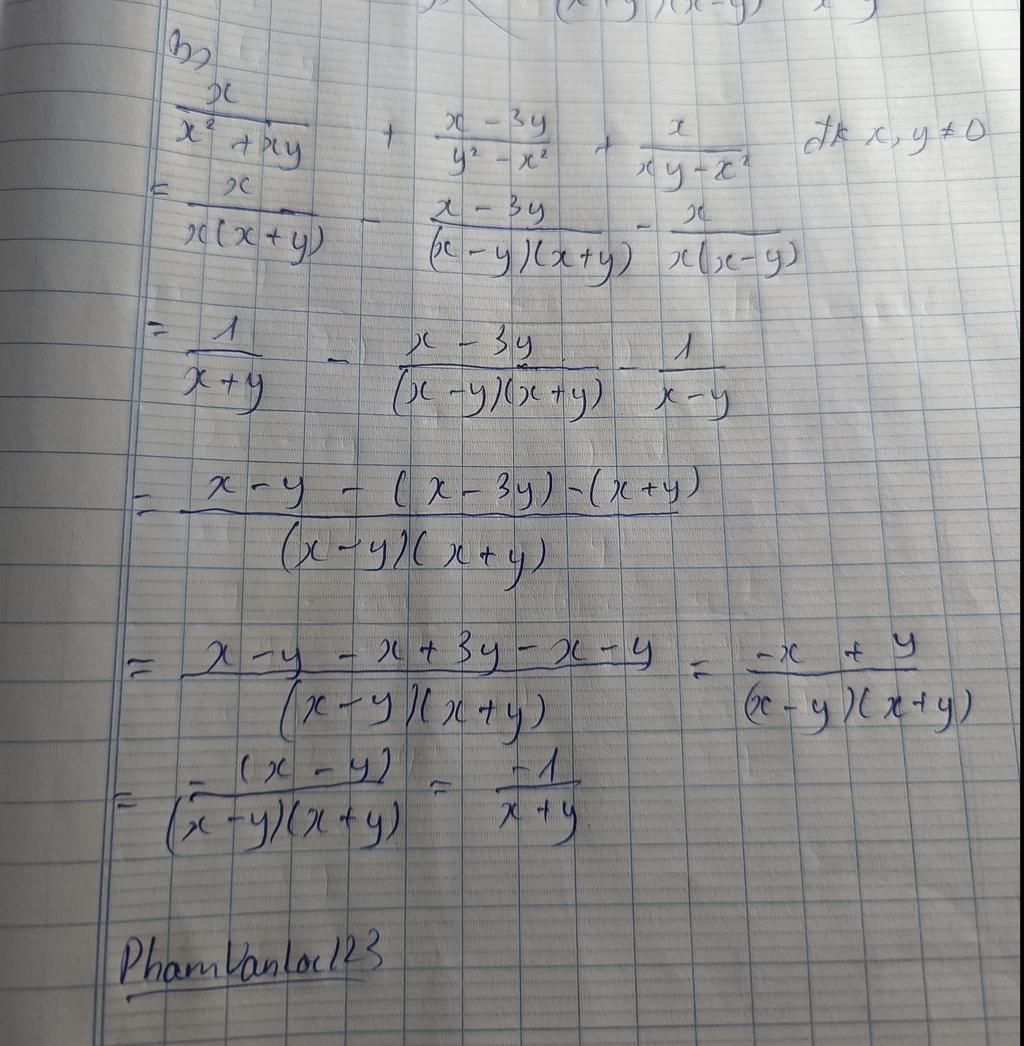 (x+y)(x-y) x-y
b>
x/(x² + xy) + (x - 3y)/(y² - x²) + x/(xy - x²) đk x, y ≠ 0
= x/(x(x+y)) - (x - 3y)/((x-y)(x+y)) - x/(x(x-y))
= 1/(x+y) - (x - 3y)/((x-y)(x+y)) - 1/(x-y)
= (x - y - (x - 3y) - (x+y))/((x-y)(x+y))
= (x - y - x + 3y - x - y)/((x-y)(x+y)) = (-x + y)/((x-y)(x+y))
= (-(x - y))/((x-y)(x+y)) = (-1)/(x+y)
PhamVanLoc123